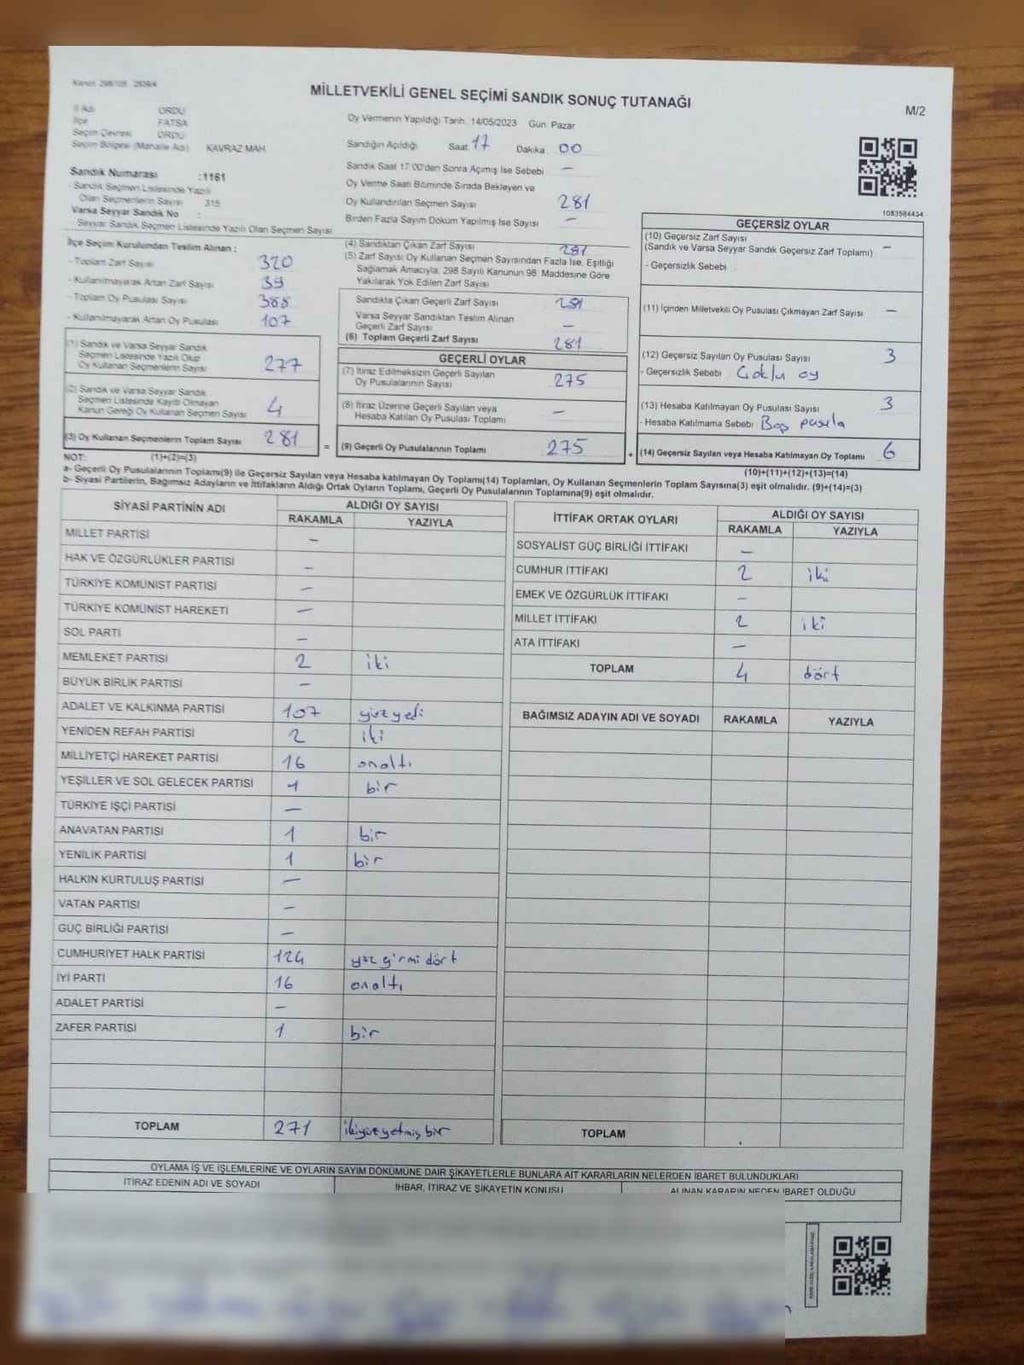 Kanun 298/105
MİLLETVEKİLİ GENEL SEÇİMİ SANDIK SONUÇ TUTANAĞI
M/2
İl Adı ORDU
İlçe FATSA
Seçim Çevresi ORDU
Seçim Bölgesi (Mahalle Adı) KAVRAZ MAH.
Sandık Numarası :1161
- Sandık Seçmen Listesinde Yazılı
Olan Seçmenlerin Sayısı 315
Varsa Seyyar Sandık No :
- Seyyar Sandık Seçmen Listesinde Yazılı Olan Seçmen Sayısı
Oy Vermenin Yapıldığı Tarih: 14/05/2023 Gün: Pazar
Sandığın Açıldığı Saat 17 Dakika 00
Sandık Saat 17:00'den Sonra Açılmış İse Sebebi —
Oy Verme Saati Bitiminde Sırada Bekleyen ve
Oy Kullandırılan Seçmen Sayısı 281
Birden Fazla Sayım Döküm Yapılmış İse Sayısı —
1083584434
İlçe Seçim Kurulundan Teslim Alınan :
- Toplam Zarf Sayısı 320
- Kullanılmayarak Artan Zarf Sayısı 39
- Toplam Oy Pusulası Sayısı 388
- Kullanılmayarak Artan Oy Pusulası 107
(1) Sandık ve Varsa Seyyar Sandık
Seçmen Listesinde Yazılı Olup
Oy Kullanan Seçmenlerin Sayısı 277
(2) Sandık ve Varsa Seyyar Sandık
Seçmen Listesinde Kayıtlı Olmayan
Kanun Gereği Oy Kullanan Seçmen Sayısı 4
(3) Oy Kullanan Seçmenlerin Toplam Sayısı 281 =
(4) Sandıktan Çıkan Zarf Sayısı 281
(5) Zarf Sayısı Oy Kullanan Seçmen Sayısından Fazla İse, Eşitliği
Sağlamak Amacıyla, 298 Sayılı Kanunun 98. Maddesine Göre
Yakılarak Yok Edilen Zarf Sayısı
Sandıkta Çıkan Geçerli Zarf Sayısı 281
Varsa Seyyar Sandıktan Teslim Alınan
Geçerli Zarf Sayısı —
(6) Toplam Geçerli Zarf Sayısı 281
GEÇERLİ OYLAR
(7) İtiraz Edilmeksizin Geçerli Sayılan
Oy Pusulalarının Sayısı 275
(8) İtiraz Üzerine Geçerli Sayılan veya
Hesaba Katılan Oy Pusulası Toplamı —
(9) Geçerli Oy Pusulalarının Toplamı 275 +
GEÇERSİZ OYLAR
(10) Geçersiz Zarf Sayısı
(Sandık ve Varsa Seyyar Sandık Geçersiz Zarf Toplamı) —
- Geçersizlik Sebebi
(11) İçinden Milletvekili Oy Pusulası Çıkmayan Zarf Sayısı —
(12) Geçersiz Sayılan Oy Pusulası Sayısı 3
- Geçersizlik Sebebi Çoklu oy
(13) Hesaba Katılmayan Oy Pusulası Sayısı 3
- Hesaba Katılmama Sebebi Boş pusula
(14) Geçersiz Sayılan veya Hesaba Katılmayan Oy Toplamı 6
NOT: (1)+(2)=(3)
(10)+(11)+(12)+(13)=(14)
a- Geçerli Oy Pusulalarının Toplamı(9) ile Geçersiz Sayılan veya Hesaba katılmayan Oy Toplamı(14) Toplamları, Oy Kullanan Seçmenlerin Toplam Sayısına(3) eşit olmalıdır. (9)+(14)=(3)
b- Siyasi Partilerin, Bağımsız Adayların ve İttifakların Aldığı Oyların Toplamı, Geçerli Oy Pusulalarının Toplamına(9) eşit olmalıdır.
SİYASİ PARTİNİN ADI ALDIĞI OY SAYISI
RAKAMLA YAZIYLA
MİLLET PARTİSİ —
HAK VE ÖZGÜRLÜKLER PARTİSİ —
TÜRKİYE KOMÜNİST PARTİSİ —
TÜRKİYE KOMÜNİST HAREKETİ —
SOL PARTİ —
MEMLEKET PARTİSİ 2 iki
BÜYÜK BİRLİK PARTİSİ —
ADALET VE KALKINMA PARTİSİ 107 yüzyedi
YENİDEN REFAH PARTİSİ 2 iki
MİLLİYETÇİ HAREKET PARTİSİ 16 onaltı
YEŞİLLER VE SOL GELECEK PARTİSİ 1 bir
TÜRKİYE İŞÇİ PARTİSİ —
ANAVATAN PARTİSİ 1 bir
YENİLİK PARTİSİ 1 bir
HALKIN KURTULUŞ PARTİSİ —
VATAN PARTİSİ —
GÜÇ BİRLİĞİ PARTİSİ —
CUMHURİYET HALK PARTİSİ 124 yüz yirmi dört
İYİ PARTİ 16 onaltı
ADALET PARTİSİ —
ZAFER PARTİSİ 1 bir
TOPLAM 271 ikiyüzyetmiş bir
İTTİFAK ORTAK OYLARI ALDIĞI OY SAYISI
RAKAMLA YAZIYLA
SOSYALİST GÜÇ BİRLİĞİ İTTİFAKI —
CUMHUR İTTİFAKI 2 iki
EMEK VE ÖZGÜRLÜK İTTİFAKI —
MİLLET İTTİFAKI 2 iki
ATA İTTİFAKI —
TOPLAM 4 dört
BAĞIMSIZ ADAYIN ADI VE SOYADI RAKAMLA YAZIYLA
TOPLAM
OYLAMA İŞ VE İŞLEMLERİNE VE OYLARIN SAYIM DÖKÜMÜNE DAİR ŞİKAYETLERLE BUNLARA AİT KARARLARIN NELERDEN İBARET BULUNDUKLARI
İTİRAZ EDENİN ADI VE SOYADI İHBAR, İTİRAZ VE ŞİKAYETİN KONUSU ALINAN KARARIN NEDEN İBARET OLDUĞU